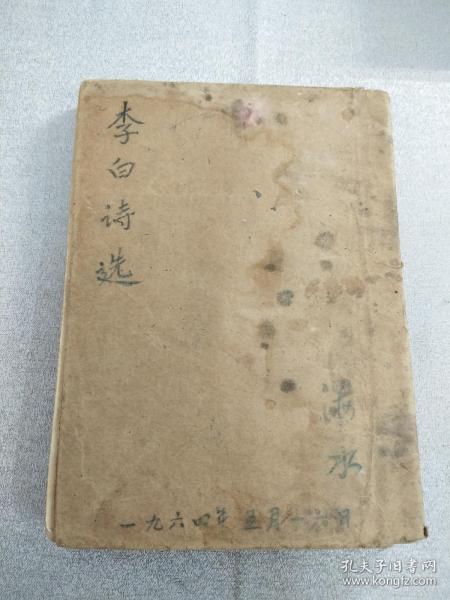 李白诗选
水
一九六四年五月十六日
孔夫子旧书网
www.kongfz.com